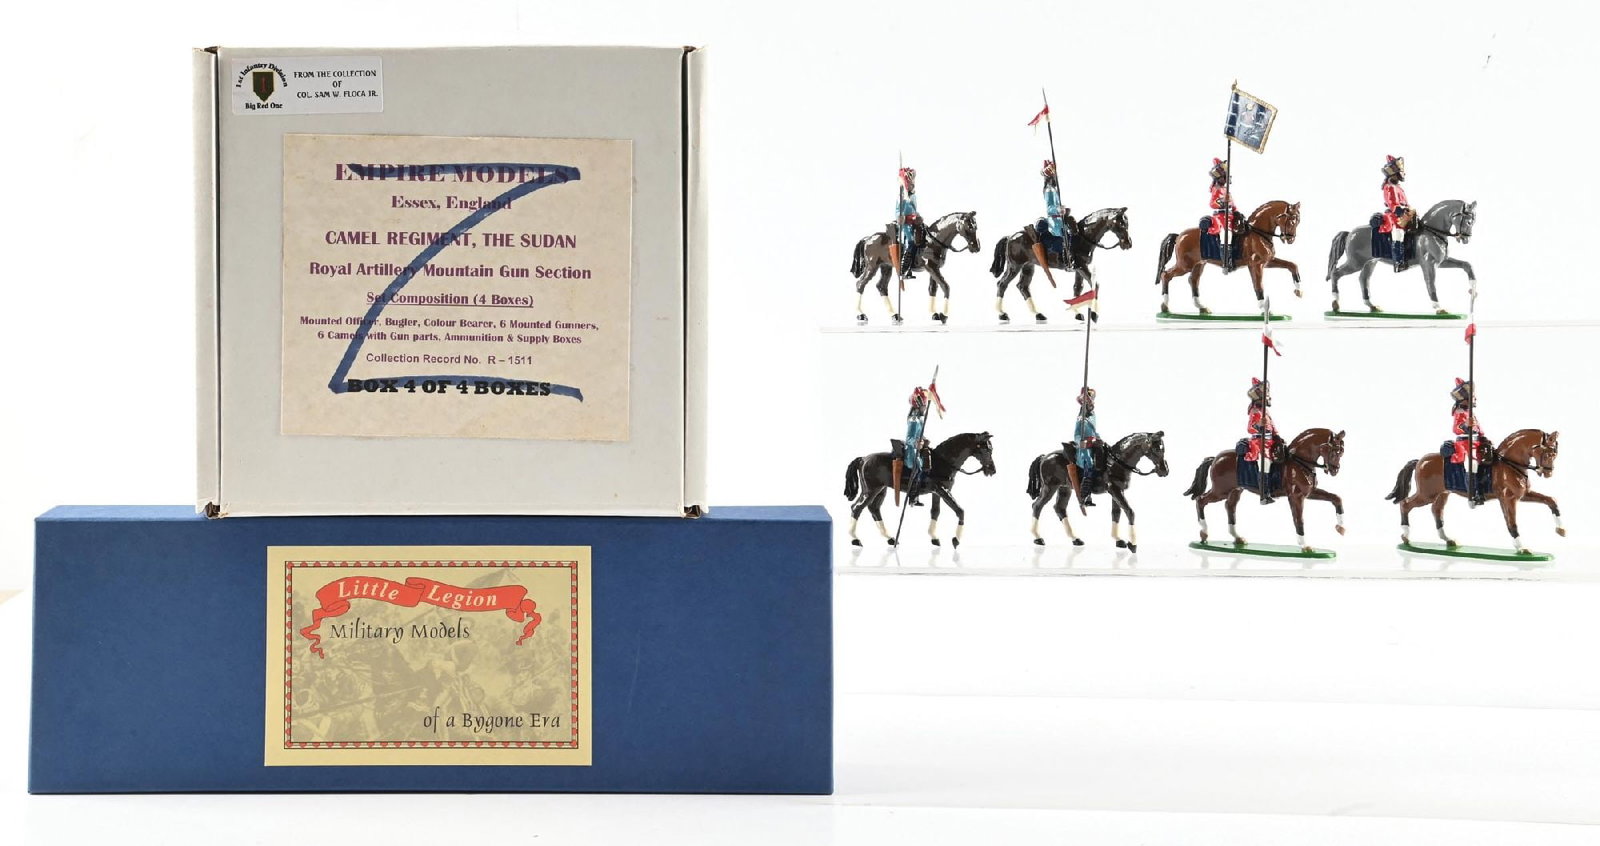 1st Infantry Division
Big Red One
FROM THE COLLECTION
OF
COL. SAM W. FLOCA JR.
EMPIRE MODELS
Essex, England
CAMEL REGIMENT, THE SUDAN
Royal Artillery Mountain Gun Section
Set Composition (4 Boxes)
Mounted Officer, Bugler, Colour Bearer, 6 Mounted Gunners,
6 Camels with Gun parts, Ammunition & Supply Boxes
Collection Record No. R – 1511
BOX 4 OF 4 BOXES
Little Legion
Military Models
of a Bygone Era